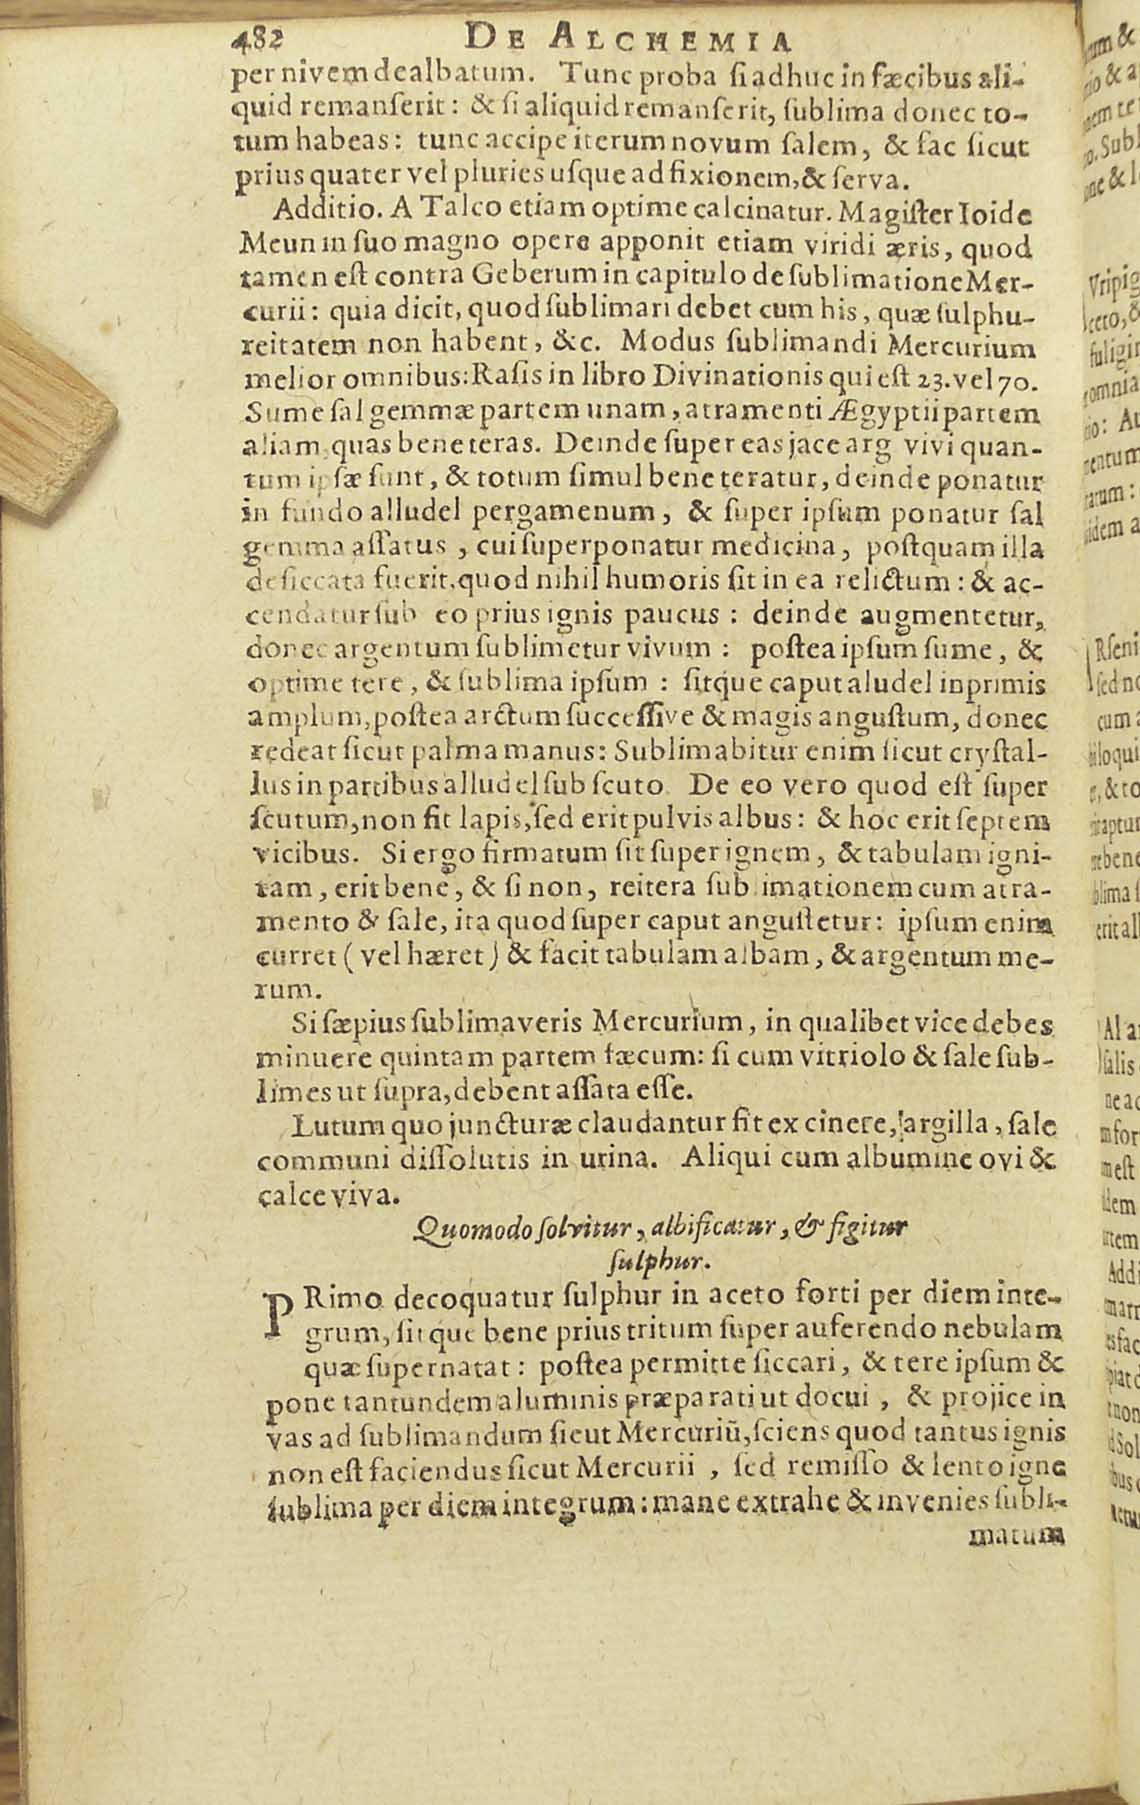 482 DE ALCHEMIA
per nivem dealbatum. Tunc proba si adhuc in fæcibus ali-
quid remanserit: & si aliquid remanserit, sublima donec to-
tum habeas: tunc accipe iterum novum salem, & fac sicut
prius quater vel pluries usque ad fixionem, & serva.
Additio. A Talco etiam optime calcinatur. Magister Ioide
Meun in suo magno opere apponit etiam viridi æris, quod
tamen est contra Geberum in capitulo de sublimatione Mer-
curii: quia dicit, quod sublimari debet cum his, quæ sulphu-
reitatem non habent, &c. Modus sublimandi Mercurium
melior omnibus: Rasis in libro Divinationis qui est 23. vel 70.
Sume sal gemmæ partem unam, atramenti Ægyptii partem
aliam, quas bene teras. Deinde super eas jace arg vivi quan-
tum ipsæ sunt, & totum simul bene teratur, deinde ponatur
in fundo alludel pergamenum, & super ipsum ponatur sal
gemma assatus, cui superponatur medicina, postquam illa
desiccata fuerit, quod nihil humoris sit in ea relictum: & ac-
cendatur sub eo prius ignis paucus: deinde augmentetur,
donec argentum sublimetur vivum: postea ipsum sume, &
optime tere, & sublima ipsum: sitque caput aludel inprimis
amplum, postea arctum successive & magis angustum, donec
redeat sicut palma manus: Sublimabitur enim sicut crystal-
lus in partibus alludel sub scuto. De eo vero quod est super
scutum, non fit lapis, sed erit pulvis albus: & hoc erit septem
vicibus. Si ergo firmatum sit super ignem, & tabulam igni-
tam, erit bene, & si non, reitera sublimationem cum atra-
mento & sale, ita quod super caput angustetur: ipsum enim
curret (vel hæret) & facit tabulam albam, & argentum me-
rum.
Si sæpius sublimaveris Mercurium, in qualibet vice debes
minuere quintam partem fæcum: si cum vitriolo & sale sub-
limes ut supra, debent assata esse.
Lutum quo juncturæ claudantur fit ex cinere, argilla, sale
communi dissolutis in urina. Aliqui cum albumine ovi &
calce viva.
Quomodo solvitur, albificatur, & figitur
sulphur.
PRimo decoquatur sulphur in aceto forti per diem inte-
grum, sit que bene prius tritum super auferendo nebulam
quæ supernatat: postea permitte siccari, & tere ipsum &
pone tantundem aluminis præparati ut docui, & projice in
vas ad sublimandum sicut Mercuriū, sciens quod tantus ignis
non est faciendus sicut Mercurii, sed remisso & lento igne
sublima per diem integrum: mane extrahe & invenies subli-
matum